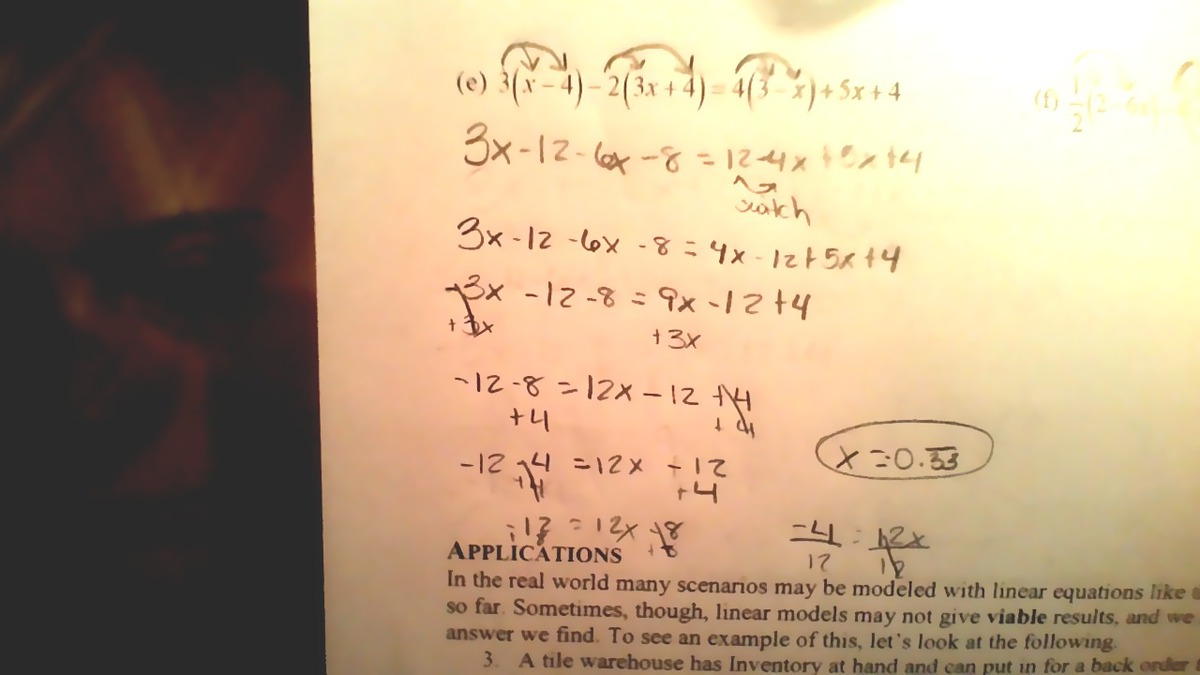 (e) 3(x-4)-2(3x+4)=4(3-x)+5x+4
(f) 1/2(2
3x-12-6x-8=12-4x+5x+4
switch
3x-12-6x-8=4x-12+5x+4
-3x-12-8=9x-12+4
+3x +3x
-12-8=12x-12+4
+4 +4
-12-4=12x-12
+4 +4
x=0.33
-12=12x-8
+8 +8
-4/12=12x/12
APPLICATIONS
In the real world many scenarios may be modeled with linear equations like
so far. Sometimes, though, linear models may not give viable results, and we
answer we find. To see an example of this, let's look at the following.
3. A tile warehouse has Inventory at hand and can put in for a back order